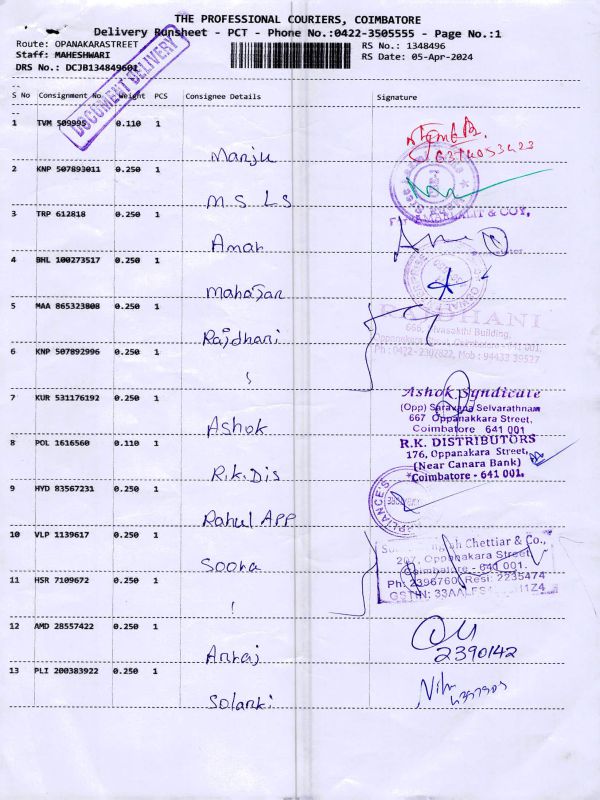 THE PROFESSIONAL COURIERS, COIMBATORE
Delivery Runsheet - PCT - Phone No.:0422-3505555 - Page No.:1
Route: OPANAKARASTREET RS No.: 1348496
Staff: MAHESHWARI RS Date: 05-Apr-2024
DRS No.: DCJB134849601
DOCUMENT DELIVERY
S No Consignment No Weight PCS Consignee Details Signature
1 TVM 509995 0.110 1
Manju
2 KNP 507893011 0.250 1
M.S LS
3 TRP 612818 0.250 1
Amar
4 BHL 100273517 0.250 1
Mahasar
5 MAA 865323808 0.250 1
Rajdhani
RAJDHANI
666, Sivasakthi Building,
Ph : 0422-2302822, Mob : 94433 39527
6 KNP 507892996 0.250 1
7 KUR 531176192 0.250 1
Ashok
Ashok Syndicate
(Opp) Saravana Selvarathnam
667 Oppanakkara Street,
Coimbatore 641 001
8 POL 1616560 0.110 1
R.K. Dis
R.K. DISTRIBUTORS
176, Oppanakara Street,
(Near Canara Bank)
Coimbatore - 641 001.
9 HYD 83567231 0.250 1
Rahul APP
10 VLP 1139617 0.250 1
Soora
Chettiar & Co.,
267, Oppanakara Street
Coimbatore - 641 001.
Ph: 2396760, Resi: 2235474
11 HSR 7109672 0.250 1
12 AMD 28557422 0.250 1
Anraj
2390142
13 PLI 200383922 0.250 1
Solanki